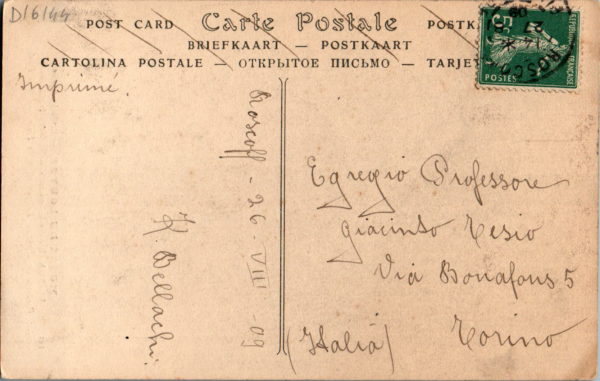 D/6/44
POST CARD Carte Postale POSTK
BRIEFKAART — POSTKAART
CARTOLINA POSTALE — ОТКРЫТОЕ ПИСЬМО — TARJET
5c
POSTES
ROSCO
27
09
Imprimé.
Roscoff - 26 - VIII - 09
Egregio Professore
Giacinto
Via Bonafous 5
(Italia) Torino